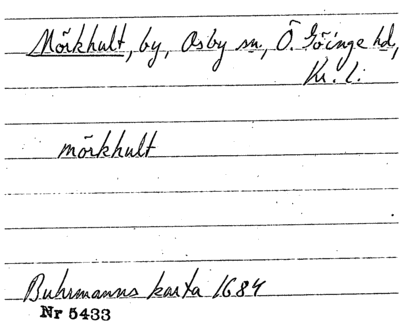 Mörkhult, by, Osby sn., Ö. Göinge hd.,
Kr. l.
mörkhult
Buhrmanns karta 1684
Nr 5433